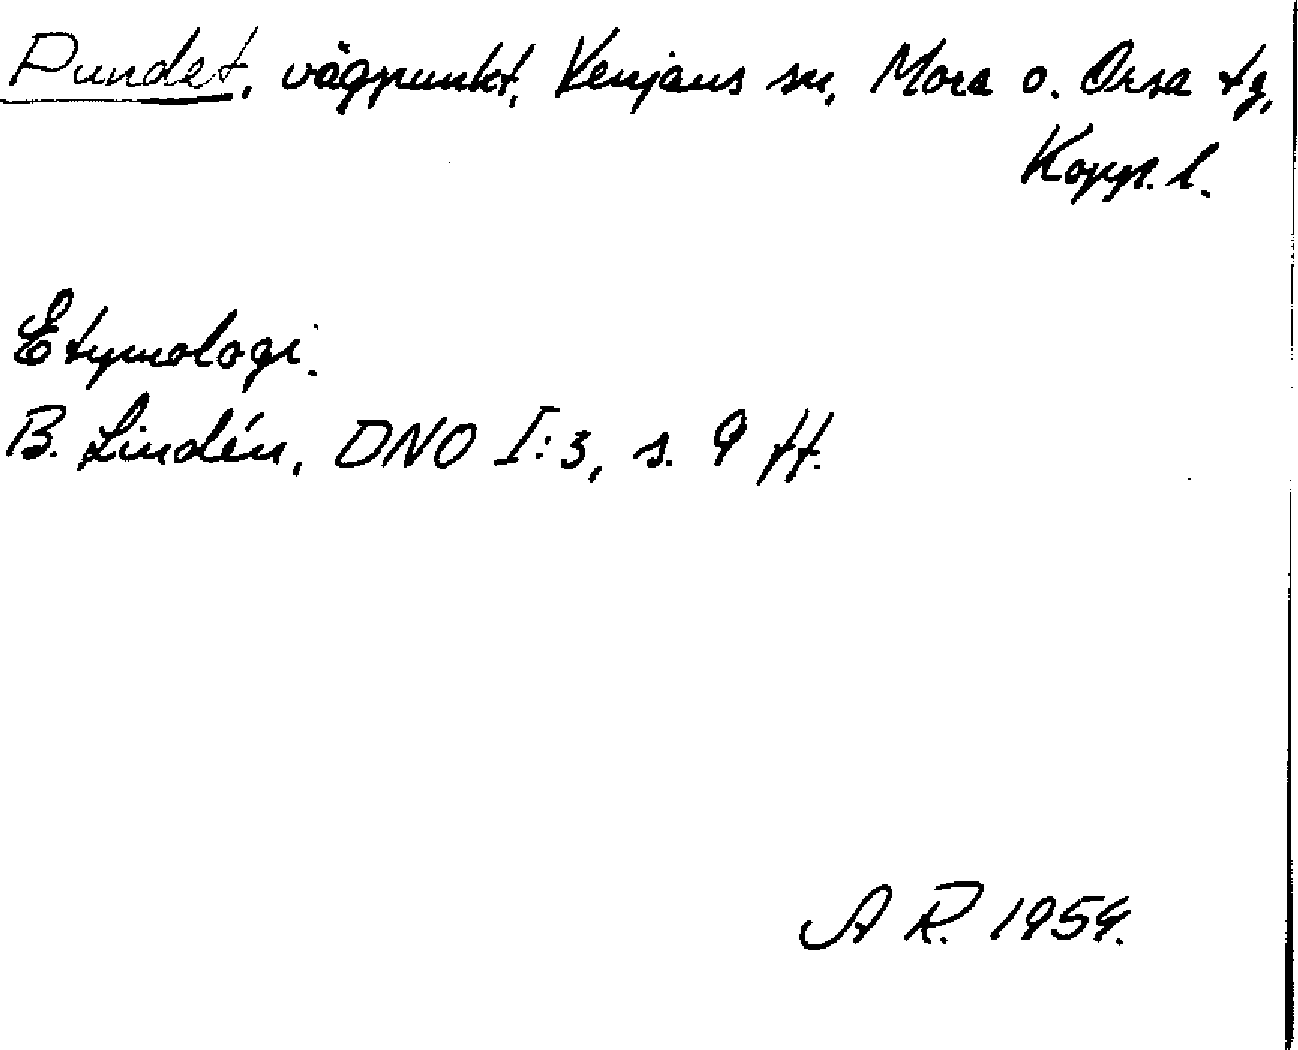 Pundet, vägpunkt, Venjans sn, Mora o. Orsa tg,
Kopp. l.
Etymologi.
B. Lindén, DNO I:3, s. 9 ff.
A R. 1959.